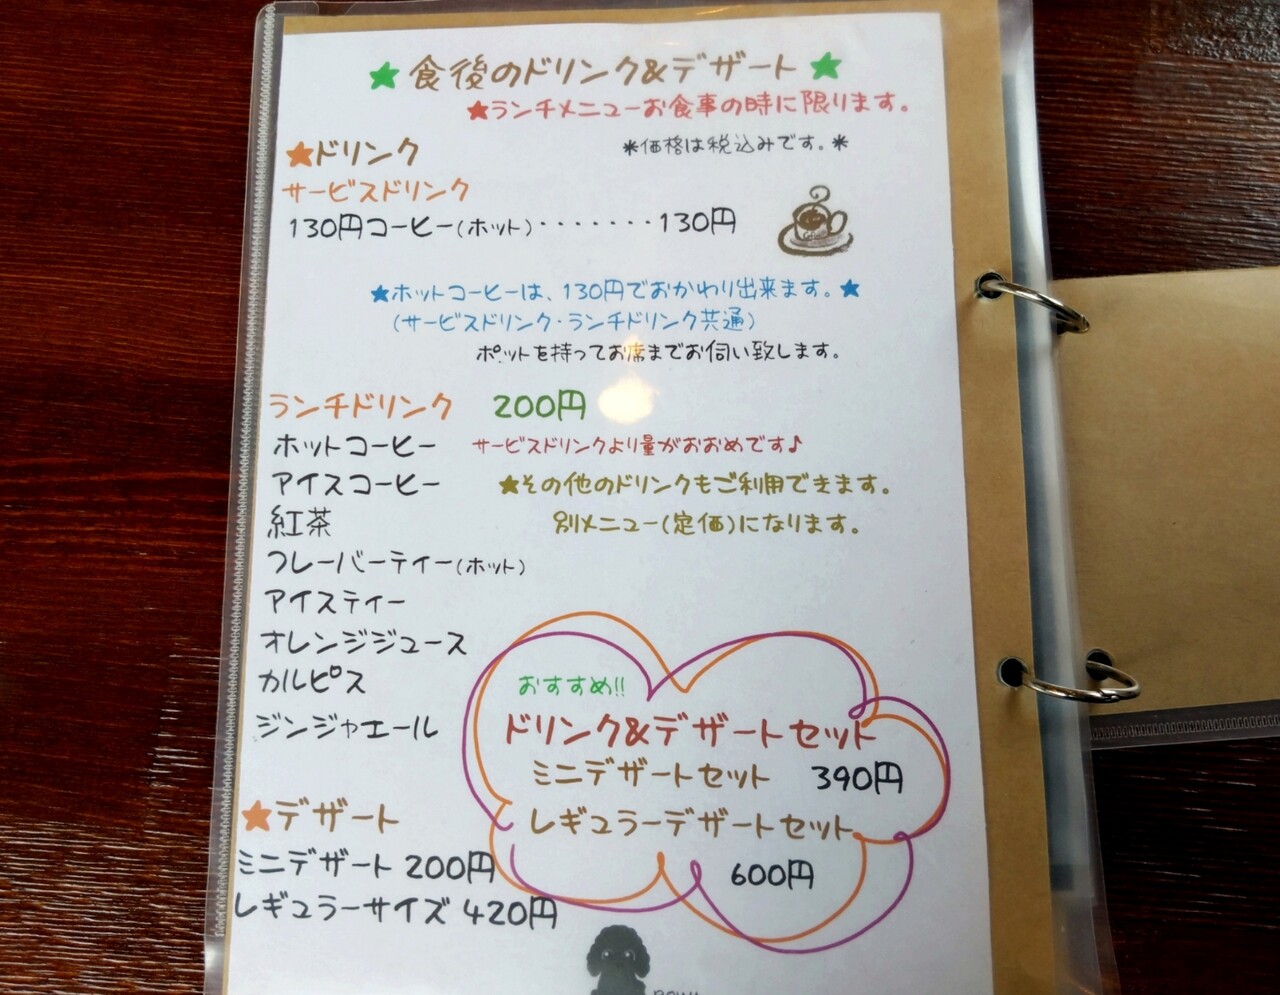 ★食後のドリンク&デザート★
★ランチメニューお食事の時に限ります。
*価格は税込みです。*
★ドリンク
サービスドリンク
130円コーヒー(ホット)・・・・・・・130円
★ホットコーヒーは、130円でおかわり出来ます。★
(サービスドリンク・ランチドリンク共通)
ポットを持ってお席までお伺い致します。
ランチドリンク 200円
ホットコーヒー サービスドリンクより量がおおめです♪
アイスコーヒー ★その他のドリンクもご利用できます。
紅茶 別メニュー(定価)になります。
フレーバーティー(ホット)
アイスティー
オレンジジュース
カルピス
ジンジャエール
おすすめ!!
ドリンク&デザートセット
ミニデザートセット 390円
レギュラーデザートセット
600円
★デザート
ミニデザート 200円
レギュラーサイズ 420円